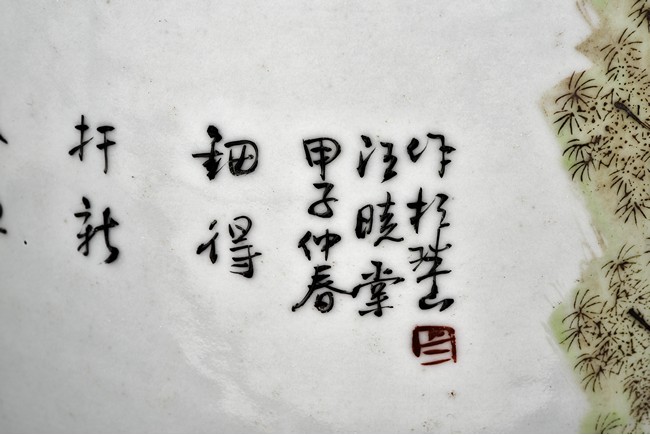 新
得
甲子仲春
汪曉棠
作於珠山